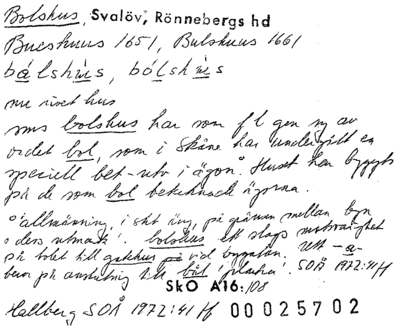 Bolshus, Svalöv, Rönnebergs hd
Bucshuus 1651, Bulshuus 1661
bálshùs, bólshùs
nu rivet hus
sms bolshus har som f l gen sg av
ordet bol, som i Skåne har undergått en
speciell bet-utv i ägon°. Huset har byggts
på de som bol betecknade ägorna.
° 'allmänning, i sht äng, på gärdan mellan byn
o dess utmark'. bolshus ett slags motsvarighet
på bolet till gatehus på vid bygatan. Utt -a-
beror på anslutning till bål 'planka'. SOÅ 1972:41ff
SkO A16:108
Hallberg SOÅ 1972:41ff 00025702